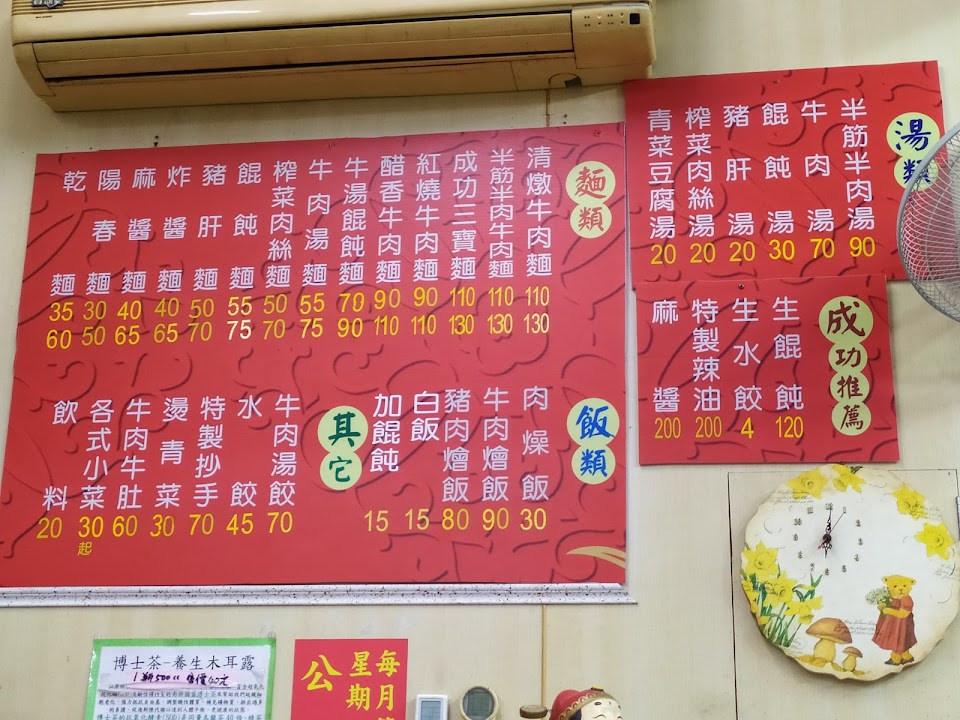 麵類
清燉牛肉麵 110 130
半筋半肉牛肉麵 110 130
成功三寶麵 110 130
紅燒牛肉麵 90 110
醋香牛肉麵 90 110
牛湯餛飩麵 70 90
牛肉湯麵 55 75
榨菜肉絲麵 50 70
餛飩麵 55 75
豬肝麵 50 70
炸醬麵 40 65
麻醬麵 40 65
陽春麵 30 50
乾麵 35 60
飯類
肉燥飯 30
牛肉燴飯 90
豬肉燴飯 80
白飯 15
加餛飩 15
其它
牛肉湯餃 70
水餃 45
特製抄手 70
燙青菜 30
牛肉牛肚 60
各式小菜 30起
飲料 20
湯類
半筋半肉湯 90
牛肉湯 70
餛飩湯 30
豬肝湯 20
榨菜肉絲湯 20
青菜豆腐湯 20
成功推薦
生餛飩 120
生水餃 4
特製辣油 200
麻醬 200
博士茶-養生木耳露
1瓶500cc 售價40元
每月
星期
公